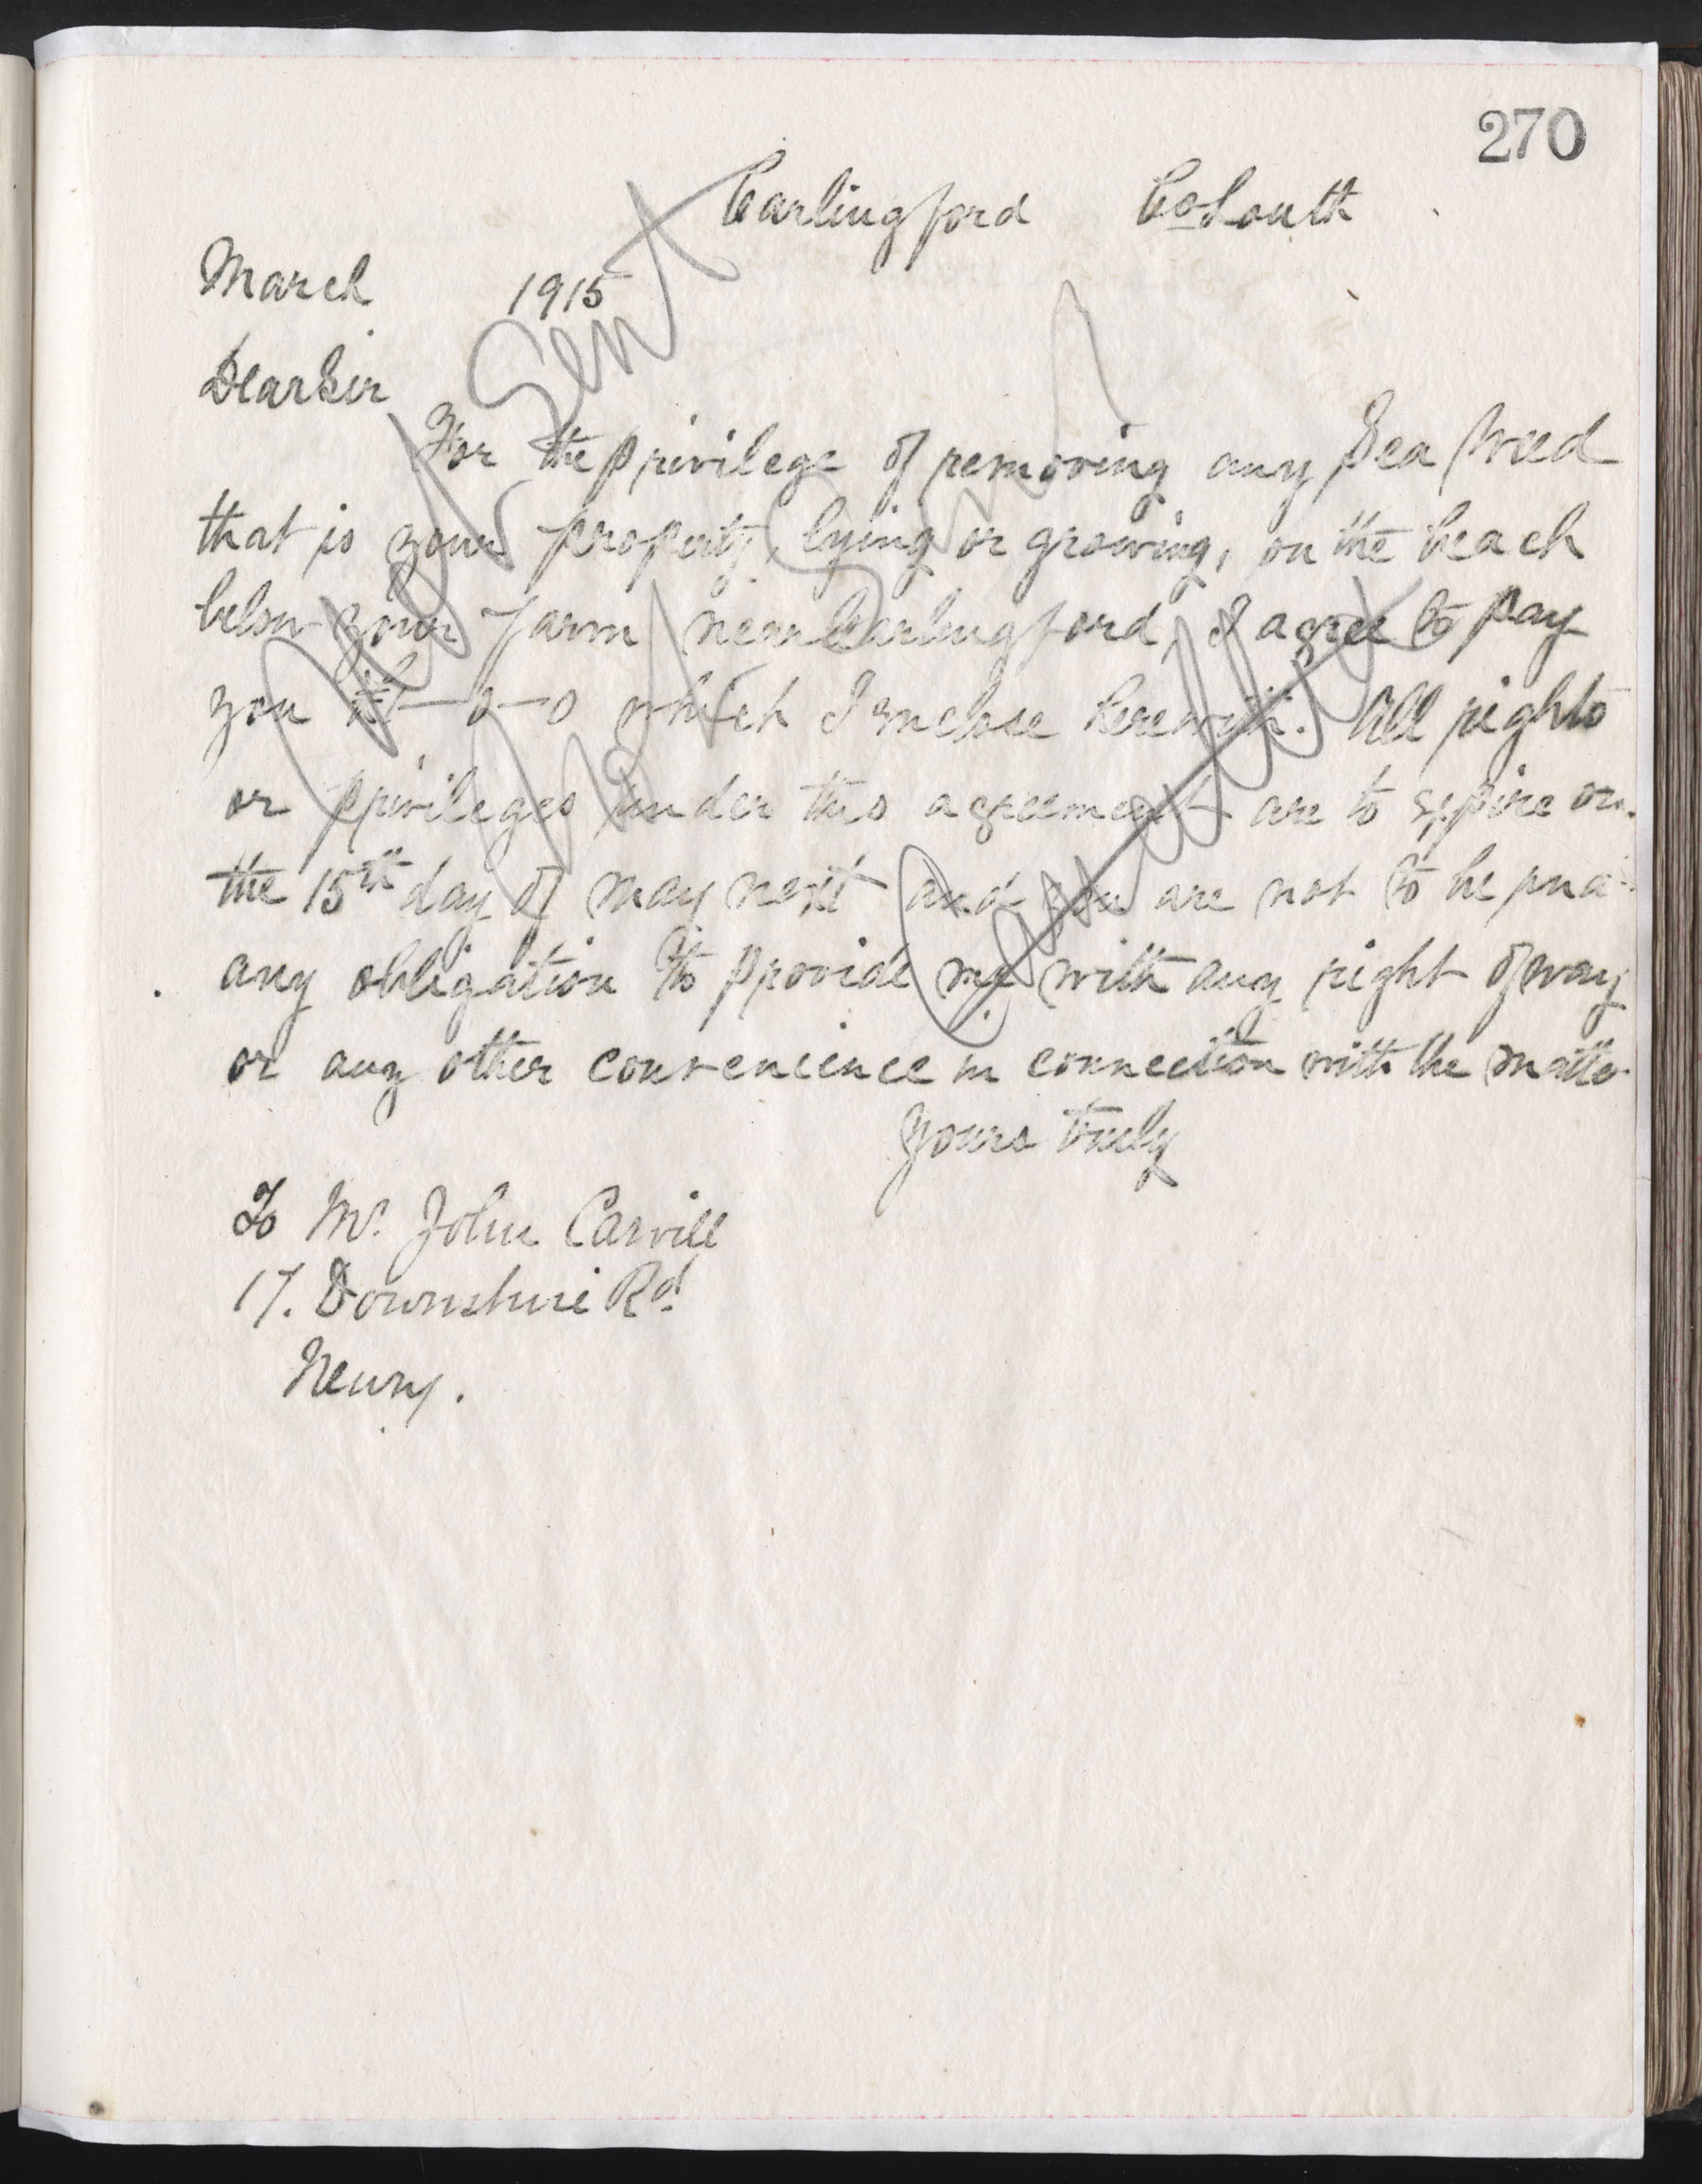 270
Carlingford Co Louth
March 1915
Dear Sir
For the privilege of removing any Sea Weed
that is your property, lying or growing, on the beach
below your farm near Carlingford, I agree to pay
you £ - 0 - 0 which I enclose herewith. All rights
or privileges under this agreement are to expire on
the 15th day of May next and you are not to be und
any obligation to provide me with any right of way
or any other convenience in connection with the matte
Yours truly
To Mr. John Carvill
17. Downshire Rd.
Newry.
Not Sent
Not Sent